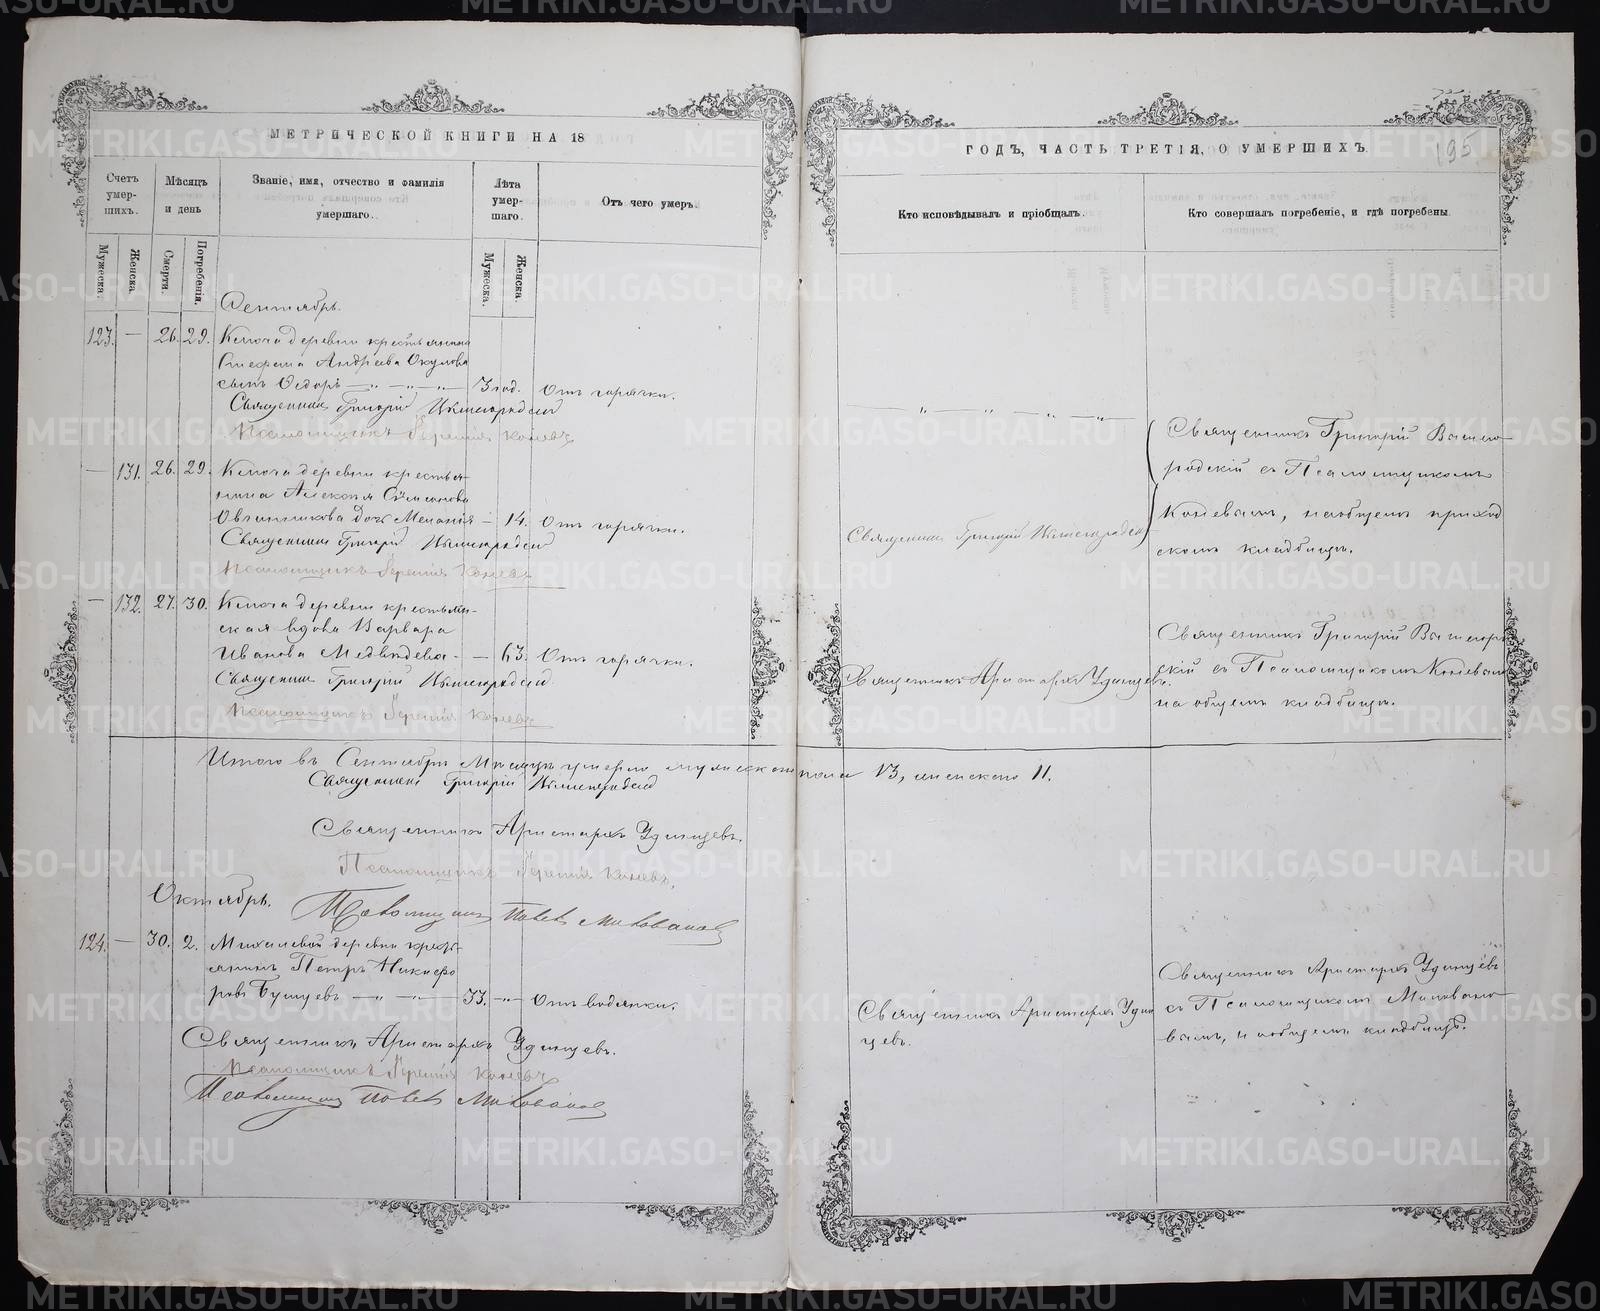 МЕТРИЧЕСКОЙ КНИГИ НА 18
Счетъ умер-шихъ.
Мѣсяцъ и день
Званіе, имя, отчество и фамилія умершаго.
Лѣта умер-шаго.
Отъ чего умеръ.
Мужеска.
Женска.
Смерти
Погребенія.
Мужеска.
Женска.
Сентябрь.
123. — 26. 29. Ключа деревни крестьянина
Стефана Андреева Окулова
сынъ Ѳедоръ — 3 год. Отъ горячки.
Священникъ Григорій
Псаломщикъ Коневъ
— 131. 26. 29. Ключа деревни крестья-
нина Алексѣя
Овчинникова дочь Меланія — 14. Отъ горячки.
Священникъ Григорій
Псаломщикъ Коневъ
— 132. 27. 30. Ключа деревни крестьян-
ская вдова Варвара
Иванова Медвѣдева — 63. Отъ горячки.
Священникъ Григорій
Псаломщикъ Коневъ
Итого въ Сентябрѣ Мѣсяцѣ умерло мужескаго пола 13, женскаго 11.
Священникъ Григорій
Священникъ Аристархъ Удинцевъ.
Псаломщикъ Коневъ.
Октябрь.
Псаломщикъ Павелъ Миловановъ
124. — 30. 2. Михалевой деревни кресть-
янинъ Петръ Никифо
ровъ — 33. — Отъ водянки.
Священникъ Аристархъ Удинцевъ.
Псаломщикъ Коневъ
Псаломщикъ Павелъ Миловановъ
ГОДЪ, ЧАСТЬ ТРЕТІЯ, О УМЕРШИХЪ.
195
Кто исповѣдывалъ и пріобщалъ.
Кто совершалъ погребеніе, и гдѣ погребены.
Священникъ Григорій
съ Псаломщикомъ
Коневымъ, на общемъ приход
скомъ кладбищѣ.
Священникъ Григорій
Священникъ Григорій
скій съ Псаломщикомъ Коневымъ
на общемъ кладбищѣ.
Священникъ Аристархъ Удинцевъ.
Священникъ Аристархъ Удинцевъ
съ Псаломщикомъ Миловано
вымъ, на общемъ кладбищѣ.
Священникъ Аристархъ Удин
цевъ.
METRIKI.GASO-URAL.RU